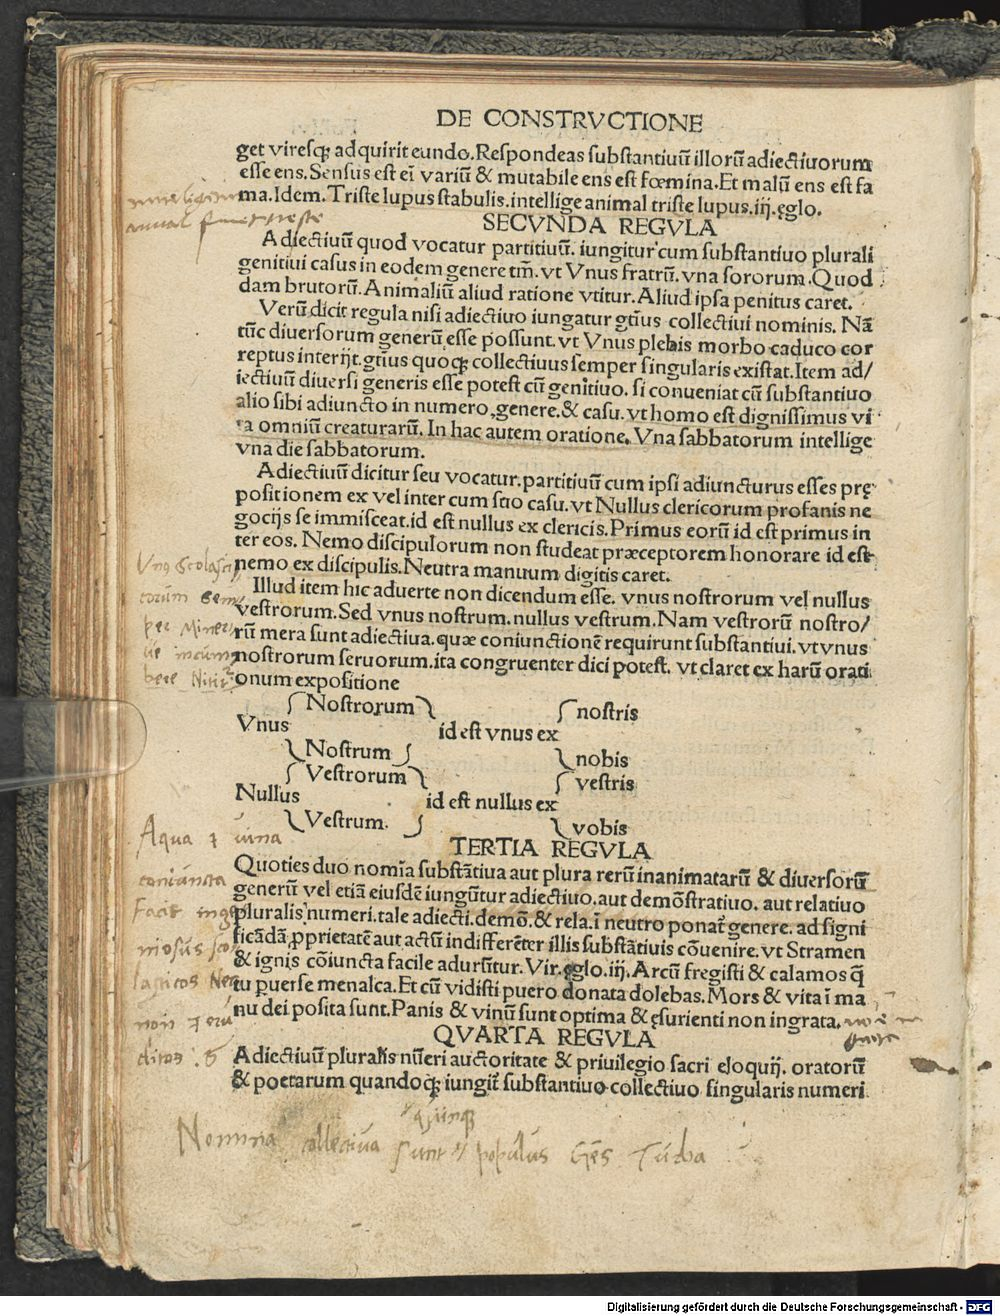 DE CONSTRVCTIONE
get viresqꝫ adquirit eundo. Respondeas substantiuũ illorũ adiectiuorum
esse ens. Sensus est eĩ variũ & mutabile ens est fœmina. Et malũ ens est fa
ma. Idem. Triste lupus stabulis. intellige animal triste lupus. iij. ęglo.
SECVNDA REGVLA
Adiectiuũ quod vocatur partitiuũ. iungitur cum substantiuo plurali
genitiui casus in eodem genere tm̃. vt Vnus fratrũ. vna sororum. Quod
dam brutorũ. Animaliũ aliud ratione vtitur. Aliud ipsa penitus caret.
Verũ dicit regula nisi adiectiuo iungatur gt̃ius collectiui nominis. Nã
tũc diuersorum generũ esse possunt. vt Vnus plebis morbo caduco cor
reptus interijt. gt̃ius quoqꝫ collectiuus semper singularis existat. Item ad/
iectiuũ diuersi generis esse potest cũ genitiuo. si conueniat cũ substantiuo
alio sibi adiuncto in numero, genere. & casu. vt homo est dignissimus vi
ta omniũ creaturarũ. In hac autem oratione. Vna sabbatorum intellige
vna die sabbatorum.
Adiectiuũ dicitur seu vocatur. partitiuũ cum ipsi adiuncturus esses prę
positionem ex vel inter cum suo casu. vt Nullus clericorum profanis ne
gocijs se immisceat. id est nullus ex clericis. Primus eorũ id est primus in
ter eos. Nemo discipulorum non studeat præceptorem honorare id est
nemo ex discipulis. Neutra manuum digitis caret.
Illud item hic aduerte non dicendum esse. vnus nostrorum vel nullus
vestrorum. Sed vnus nostrum. nullus vestrum. Nam vestrorũ nostro/
rũ mera sunt adiectiua. quæ coniunctionẽ requirunt substantiui. vt vnus
nostrorum seruorum. ita congruenter dici potest. vt claret ex harũ orati
onum expositione
Nostrorum nostris
Vnus id est vnus ex
Nostrum nobis
Vestrorum vestris
Nullus id est nullus ex
Vestrum. vobis
TERTIA REGVLA
Quoties duo nomĩa substãtiua aut plura rerũ inanimatarũ & diuersorũ
generũ vel etiã eiusdẽ iungũtur adiectiuo. aut demõstratiuo. aut relatiuo
pluralis numeri. tale adiecti. demõ. & rela. ĩ neutro ponat᷑ genere. ad signi
ficãdã ꝓprietatẽ aut actũ indifferẽter illis substãtiuis cõuenire. vt Stramen
& ignis cõiuncta facile adurũtur. Vir. ęglo. iij. Arcũ fregisti & calamos q̃
tu ꝑuerse menalca. Et cũ vidisti puero donata dolebas. Mors & vita ĩ ma
nu dei posita sunt. Panis & vinũ sunt optima & ęsurienti non ingrata.
QVARTA REGVLA
Adiectiuũ pluralis nũeri auctoritate & priuilegio sacri eloquij. oratorũ
& poetarum quandoqꝫ iungit᷑ substantiuo collectiuo singularis numeri
Vnꝰ Scolasti
corum Sem
per Miner
ue incum
bere
Aqua ⁊ uina
coniuncta
Nomina collectiua sunt populus Gẽs Turba
Digitalisierung gefördert durch die Deutsche Forschungsgemeinschaft - DFG